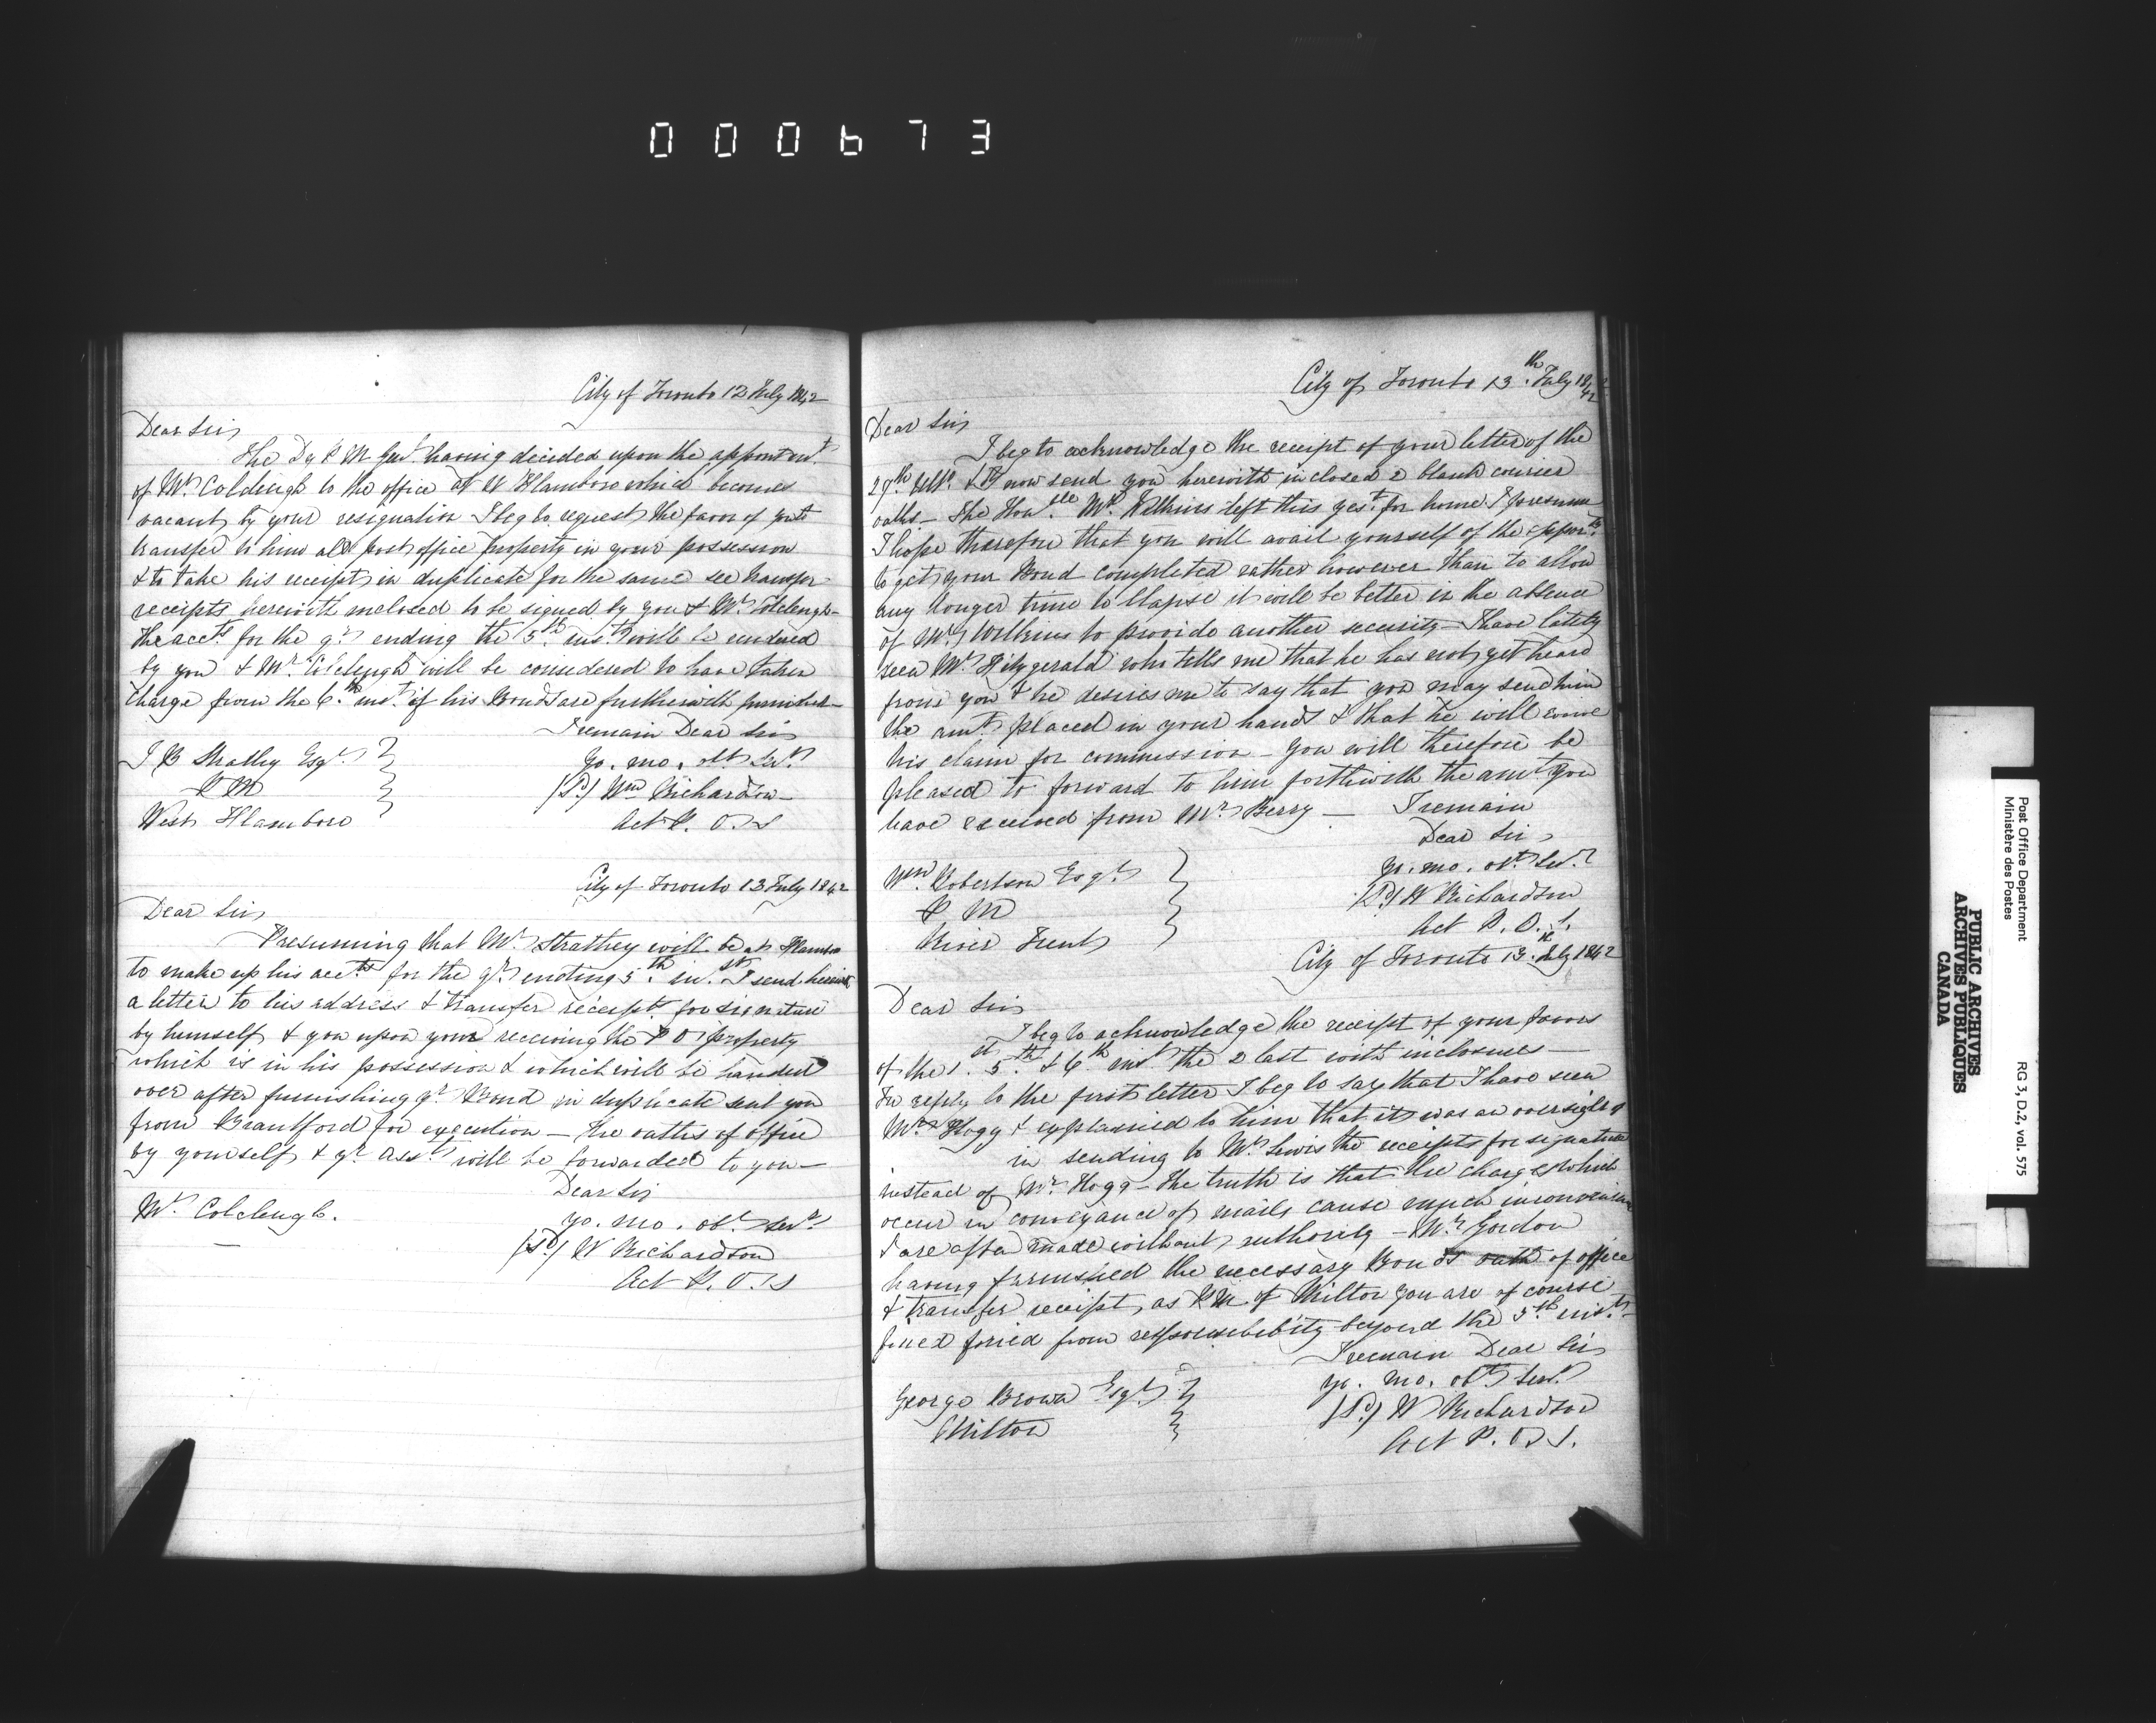 000673
City of Toronto 12 July 1842
Dear Sir
The Dy P M Genl having decided upon the appointmt
of Mr Colcleugh to the office at W Flamboro which becomes
vacant by your resignation I beg to request the favor of you to
transfer to him all post office property in your possession
& to take his receipts in duplicate for the same see transfer
receipts herewith inclosed to be signed by you & Mr Colcleugh
The accts for the qr ending the 5th inst will be rendered
by you & Mr Colcleugh will be considered to have taken
charge from the 6th inst if his Bonds are furthwith furnished
I remain Dear Sir
J B Strathy Esqr
yo. mo. obt Sert
P M
(Sd) Wm Richardson
West Flamboro
Act P. O. S
City of Toronto 13 July 1842
Dear Sir
Presuming that Mr Strathey will be at Flamboro
to make up his accts for the qr ending 5th inst I send herewith
a letter to his address & transfer receipts for signature
by himself & you upon your receiving the P O property
which is in his possession & which will be handed
over after furnishing yr Bond in duplicate sent you
from Brantford for execution — the oaths of office
by yourself & yr asst will be forwarded to you —
Dear Sir
Mr Colcleugh.
yo. mo. obt Sert
(Sd) W Richardson
Act P. O. S
City of Toronto 13th July 1842
Dear Sir
I beg to acknowledge the receipt of your letter of the
29th Ulto & I now send you herewith inclosed 2 blank courier
oaths — The Honble Mr Wilkins left this yest for home I presume
I hope therefore that you will avail yourself of the opporty
to get your Bond completed rather however than to allow
any longer time to ellapse it will be better in the absence
of Mr Wilkins to provide another security — I have lately
seen Mr Fitzgerald who tells me that he has not yet heard
from you & he desires me to say that you may send him
the amt placed in your hands & that he will waive
his claim for commission — you will therefore be
pleased to forward to him forthwith the amt you
have received from Mr Berry — I remain
Dear Sir
Wm Robertson Esqr
yo. mo. obt Sert
P M
(Sd) W Richardson
River Trent
Act P. O. S.
City of Toronto 13th July 1842
Dear Sir
I beg to acknowledge the receipt of your favors
of the 1st 5th & 6th inst the 2 last with inclosures —
In reply to the first letter I beg to say that I have seen
Mr Hogg & explained to him that it was an oversight
in sending to Mr Lewis the receipts for signature
instead of Mr Hogg — The truth is that the changes which
occur in conveyance of mails cause much inconvenience
& are often made without authority — Mr Gordon
having furnished the necessary Bonds oath of office
& transfer receipt, as P M of Milton you are of course
from responsibibity beyond the 5th inst —
I remain Dear Sir
George Brown Esqr
yo. mo. obt Sert
Milton
(Sd) W Richardson
Act P. O. S.
Post Office Department
Ministère des Postes
RG 3, D.2, vol. 575
PUBLIC ARCHIVES
ARCHIVES PUBLIQUES
CANADA